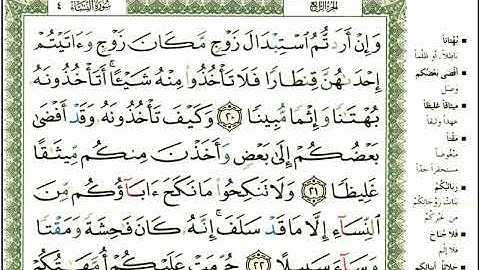 الجزء الرابع
سورة النساء
٤
وَإِنْ أَرَدتُّمُ ٱسْتِبْدَالَ زَوْجٍ مَّكَانَ زَوْجٍ وَءَاتَيْتُمْ
إِحْدَىٰهُنَّ قِنطَارًا فَلَا تَأْخُذُوا۟ مِنْهُ شَيْـًٔا ۚ أَتَأْخُذُونَهُۥ
بُهْتَـٰنًا وَإِثْمًا مُّبِينًا ٢٠ وَكَيْفَ تَأْخُذُونَهُۥ وَقَدْ أَفْضَىٰ
بَعْضُكُمْ إِلَىٰ بَعْضٍ وَأَخَذْنَ مِنكُم مِّيثَـٰقًا
غَلِيظًا ٢١ وَلَا تَنكِحُوا۟ مَا نَكَحَ ءَابَآؤُكُم مِّنَ
ٱلنِّسَآءِ إِلَّا مَا قَدْ سَلَفَ ۚ إِنَّهُۥ كَانَ فَـٰحِشَةً وَمَقْتًا
وَسَآءَ سَبِيلًا ٢٢ حُرِّمَتْ عَلَيْكُمْ أُمَّهَـٰتُكُمْ
بُهْتَاناً
بَاطِلاً، أو ظُلْماً
أفْضَى بَعْضُكُم
وَصَلَ
مِيثاقاً غليظاً
عَهْداً وثيقاً
مَقْتاً
مَبْغُوضاً
مستحقراً جِدّاً
رَبَائِبُكُم
بَنَاتُ زَوْجَاتِكُمْ
من غَيْرِكُمْ
فَلا جُنَاحَ
فلا إثْمَ
حَلائِلُ أَبْنَائِكُم